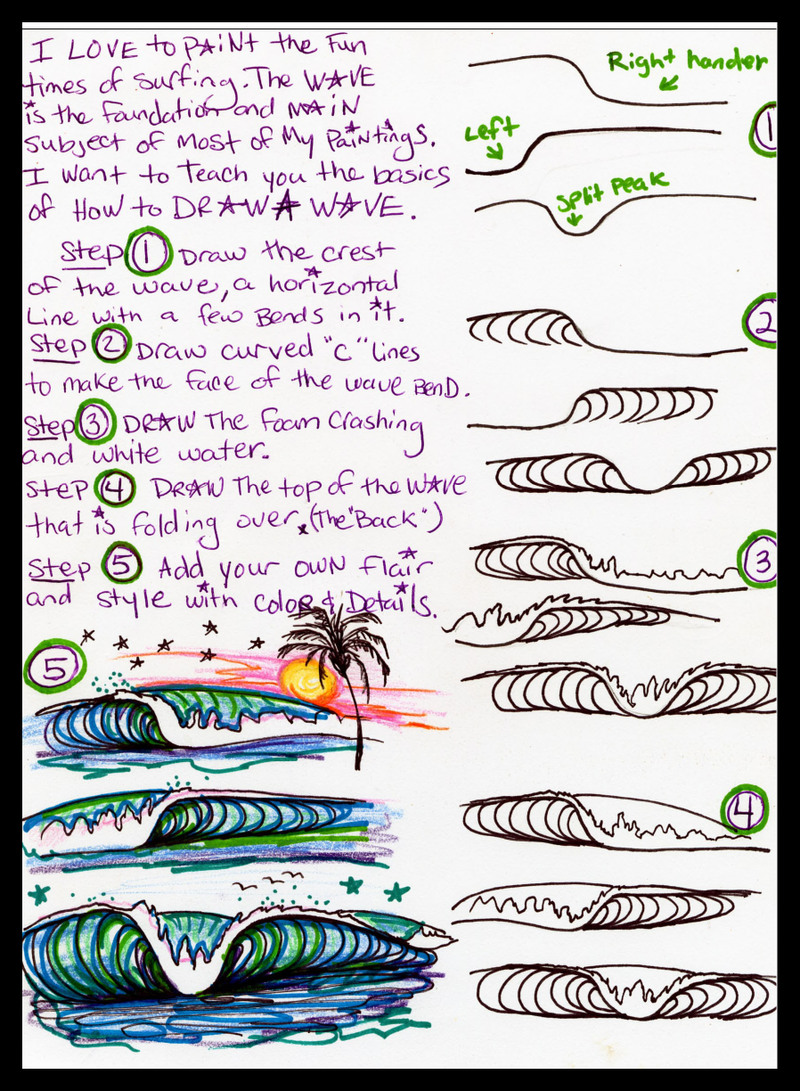 I LOVE to PAiNT the Fun
times of surfing. The WAVE
is the foundation and MAiN
subject of most of My PaiNtiNgS.
I want to Teach you the basics
of How to DRAW A WAVE.
Step 1 Draw the crest
of the wave, a horizontal
Line with a few Bends in it.
Step 2 Draw curved "C" lines
to make the face of the wave BenD.
Step 3 DRAW The foam Crashing
and white water.
Step 4 DRAW The top of the WAVE
that is folding over, (The "Back")
Step 5 Add your own flair
and style with color & Details.
Right hander
1
Left
Split Peak
2
3
4
5